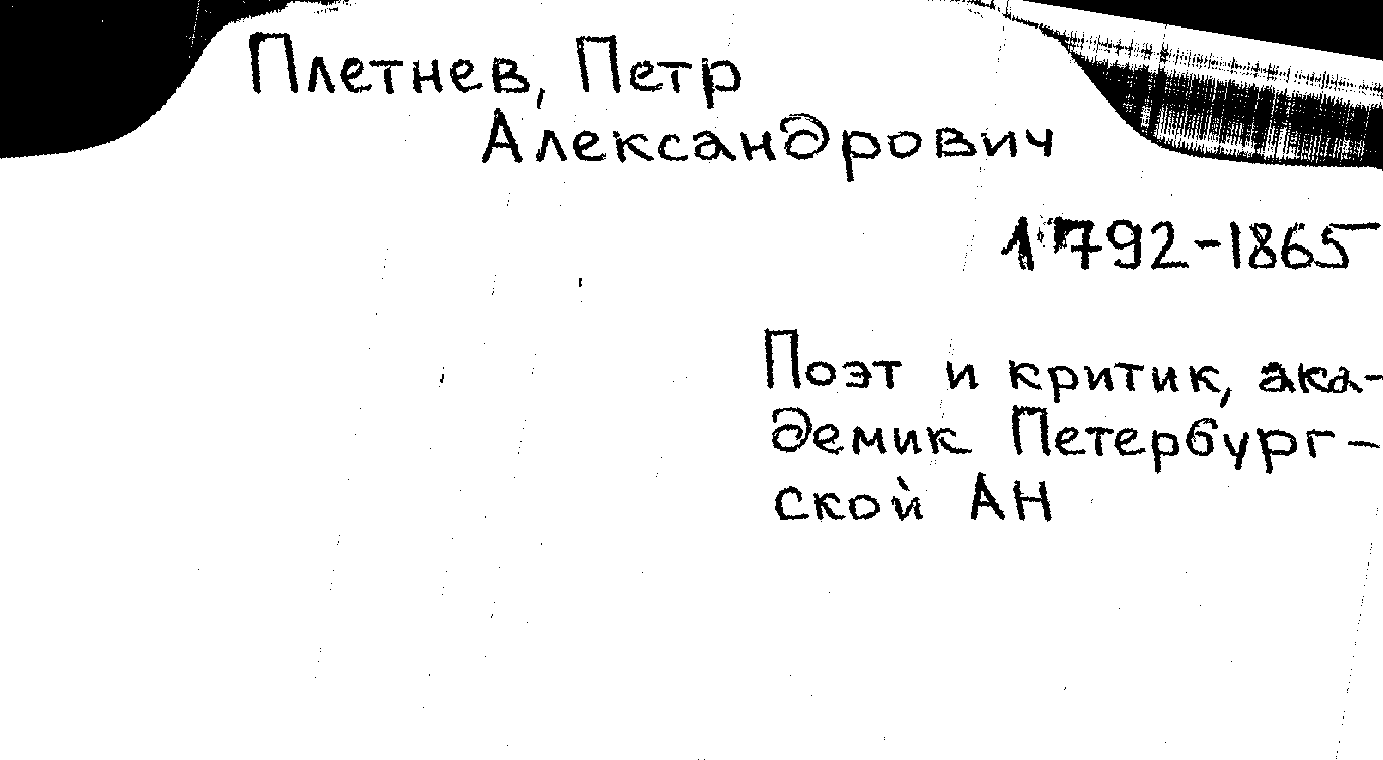 Плетнев, Петр
Александрович
1792-1865
Поэт и критик, ака-
демик Петербург-
ской АН